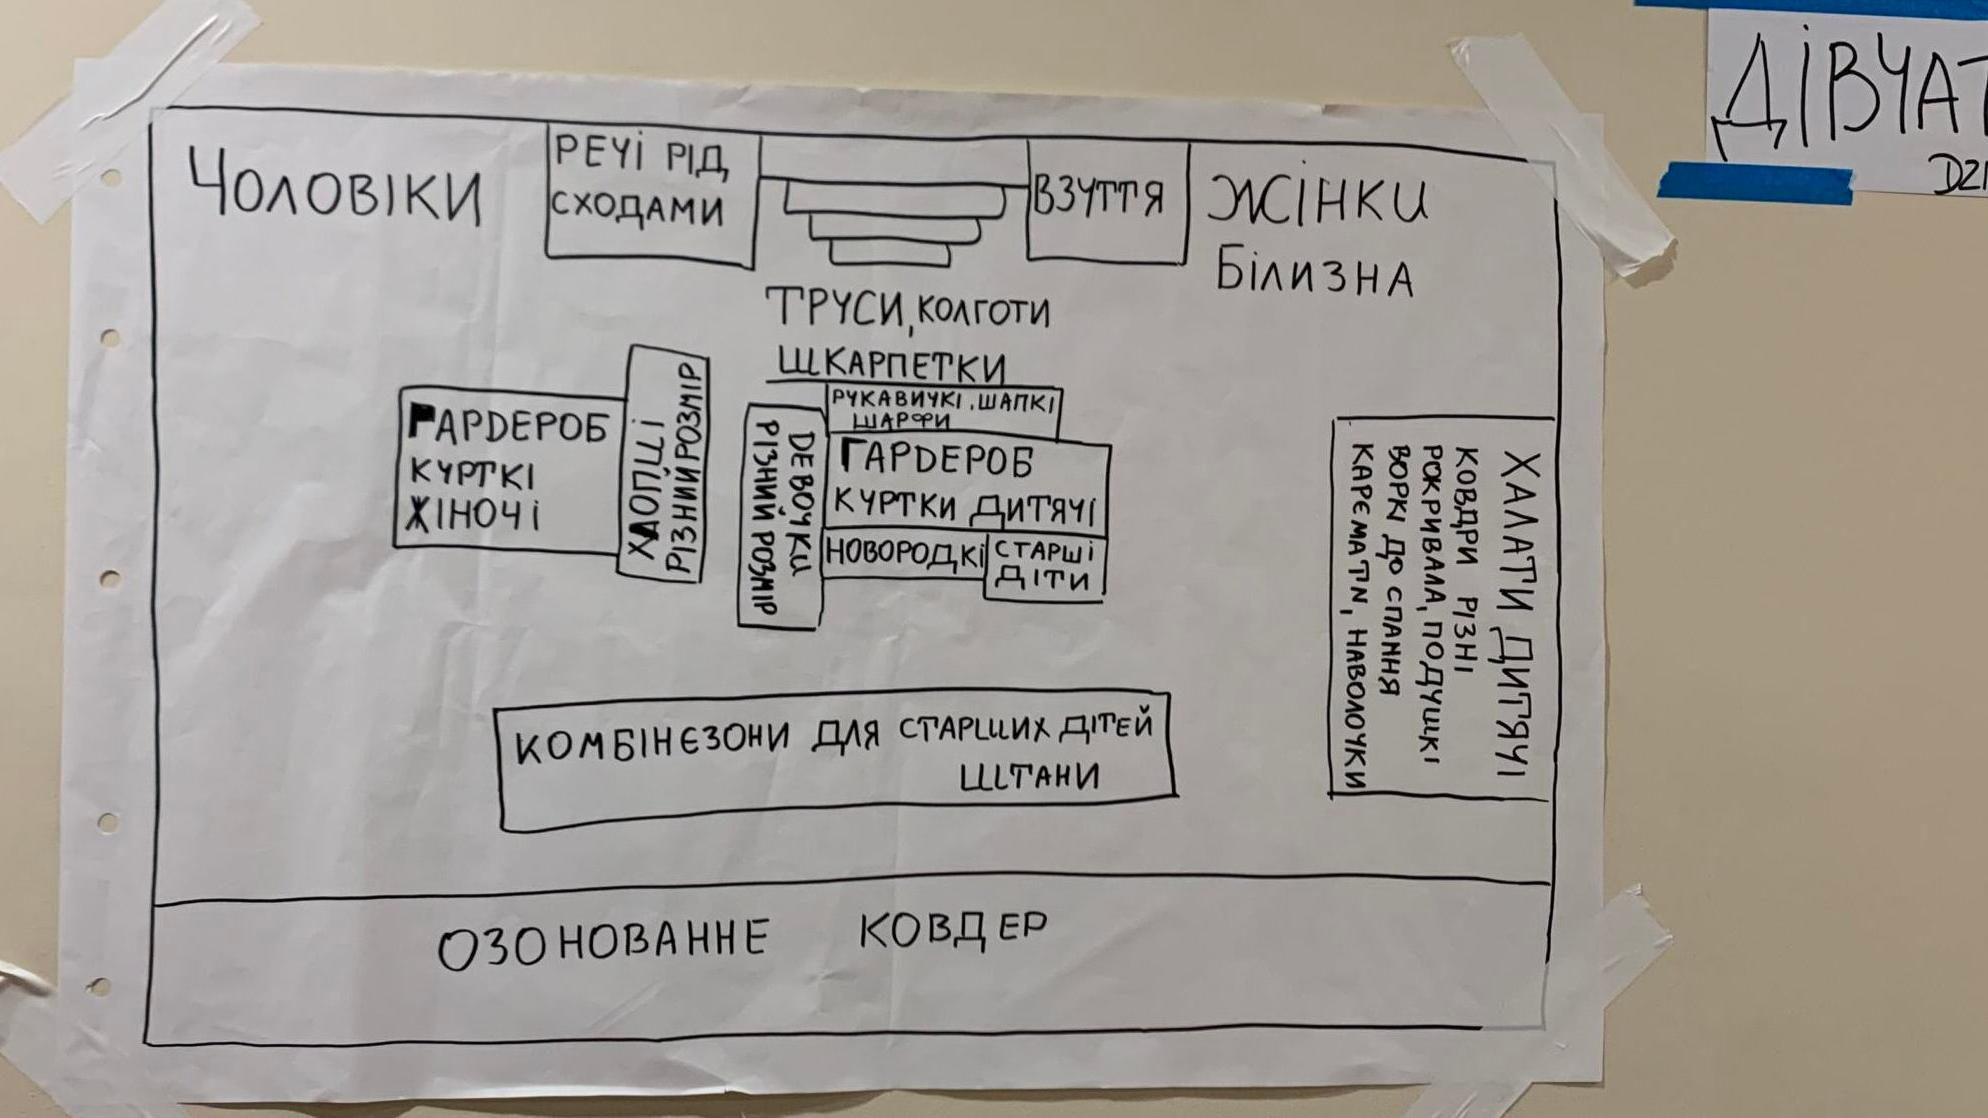 ЧОЛОВІКИ
РЕЧІ РІД
СХОДАМИ
ВЗУТТЯ
ЖІНКИ
БІЛИЗНА
ТРУСИ, КОЛГОТИ
ШКАРПЕТКИ
ГАРДЕРОБ
КУРТКІ
ЖІНОЧІ
ХЛОПЦІ
РІЗНИЙ РОЗМІР
ДЕВОЧКИ
РІЗНИЙ РОЗМІР
РУКАВИЧКІ. ШАПКІ
ШАРФИ
ГАРДЕРОБ
КУРТКИ ДИТЯЧІ
НОВОРОДКІ
СТАРШІ
ДІТИ
ХАЛАТИ ДИТЯЧІ
КОВДРИ РІЗНІ
РОКРИВАЛА, ПОДУШКІ
ВОРКІ ДО СПАННЯ
КАРЄМАТИ, НАВОЛОЧКИ
КОМБІНЄЗОНИ ДЛЯ СТАРШИХ ДІТЕЙ
ШТАНИ
ОЗОНОВАННЕ КОВДЕР
ДІВЧАТ
DZI